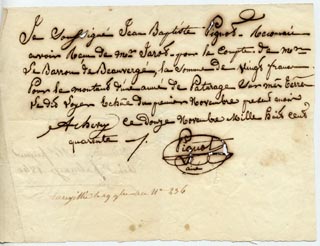 Je Soussigné Jean Baptiste Piguot. Reconnai
avoir Reçu de mr Jarot, pour la Compte de mr
Le Baron de Beauvergé, la Somme de Vingt franc
Pour la montant du de Paturage Sur mes terre
Le dis Voyer Echue du premier Novembre present mois
Achery ce douze Novembre Mille huis Cens
quarante
Piguot
N° 236